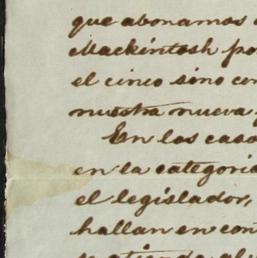 que abonamos
Mackintosh po
el cinco sino con
nuestra nueva
En los caso
en la categoria
el legislador,
hallan en con